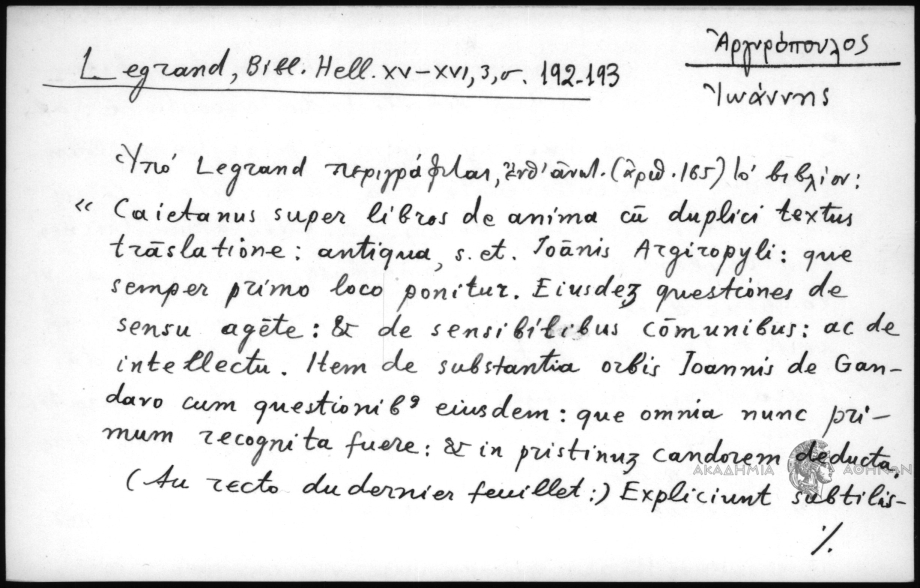 Ἀργυρόπουλος
Ἰωάννης
Legrand, Bibl. Hell. XV–XVI, 3, σ. 192-193
Ὑπό Legrand περιγράφεται, ἔνθ' ἀνωτ. (ἀριθ. 165) τό βιβλίον:
« Caietanus super libros de anima cū duplici textus
trāslatione: antiqua, s. et. Ioānis Argiropyli: que
semper primo loco ponitur. Eiusdeʒ questiones de
sensu agēte: & de sensibilibus cōmunibus: ac de
intellectu. Item de substantia orbis Joannis de Gan-
davo cum questionibꝰ eiusdem: que omnia nunc pri-
mum recognita fuere: & in pristinuʒ candorem deducta.
ΑΚΑΔΗΜΙΑ ΑΘΗΝΩΝ
(Au recto du dernier feuillet:) Expliciunt subtilis-
./.